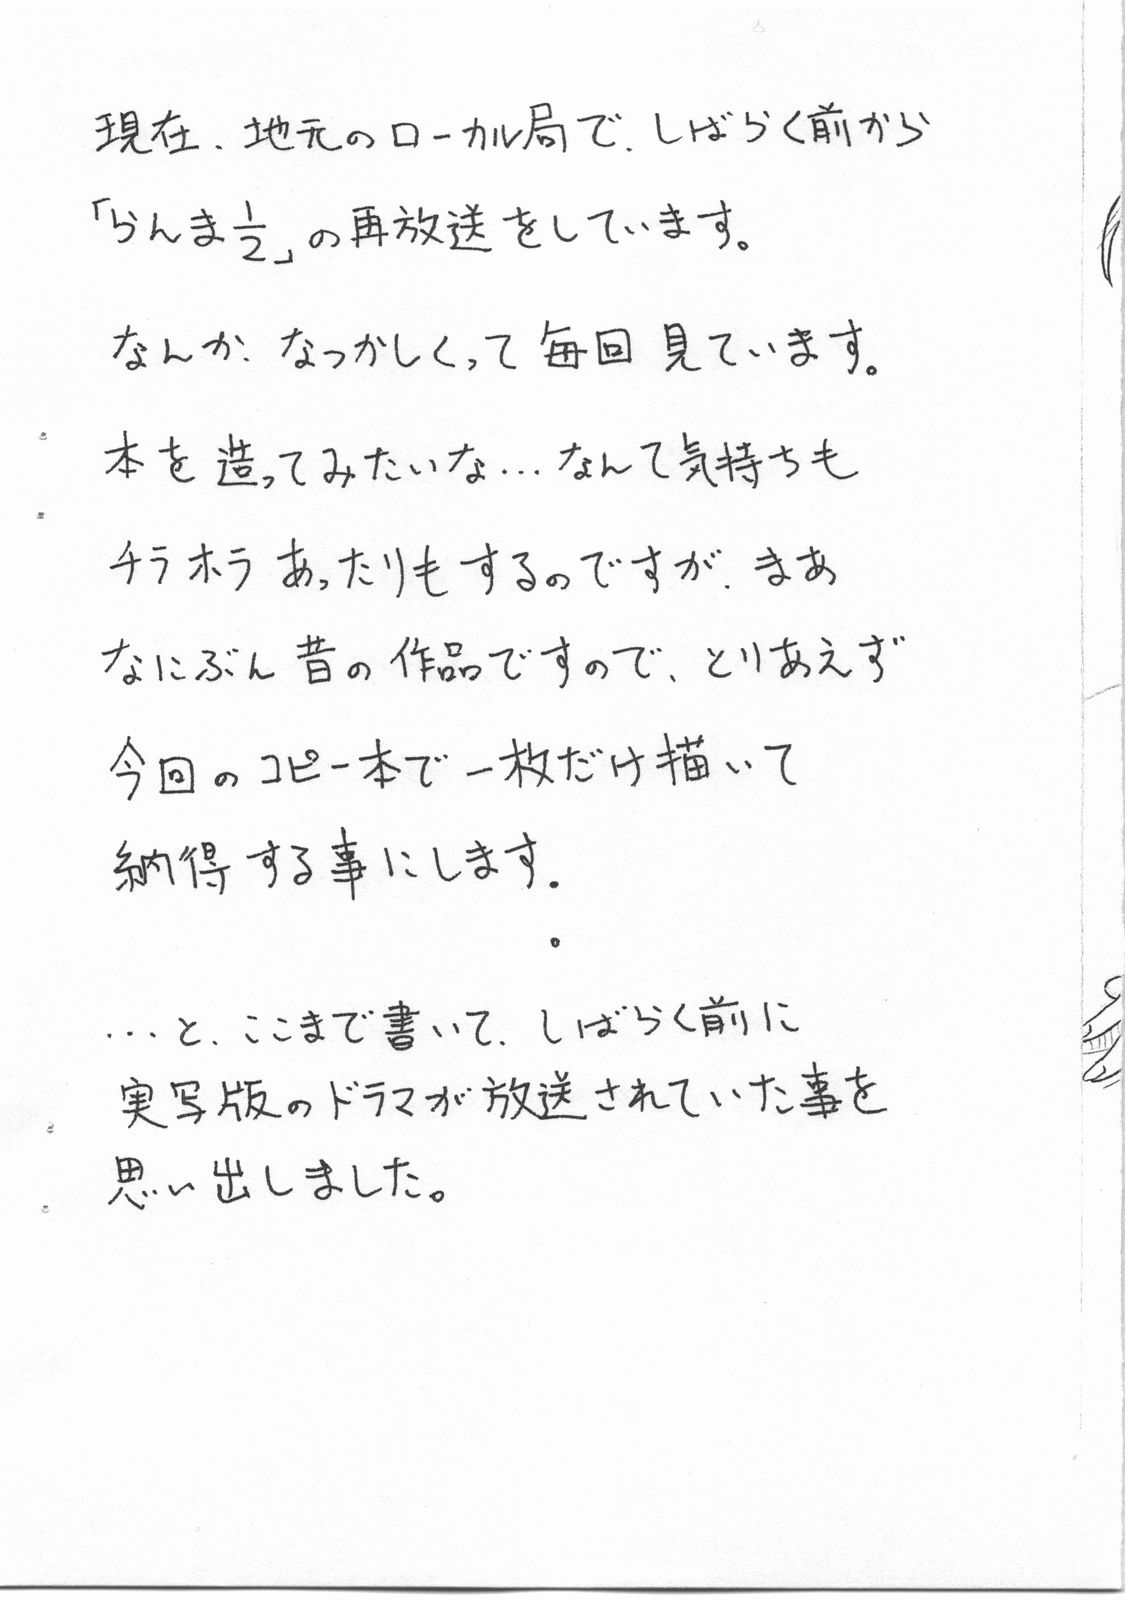 現在、地元のローカル局で、しばらく前から
「らんま1/2」の再放送をしています。
なんか、なつかしくって毎回見ています。
本を造ってみたいな…なんて気持ちも
チラホラあったりもするのですが、まあ
なにぶん昔の作品ですので、とりあえず
今回のコピー本で一枚だけ描いて
納得する事にします。
。
…と、ここまで書いて、しばらく前に
実写版のドラマが放送されていた事を
思い出しました。